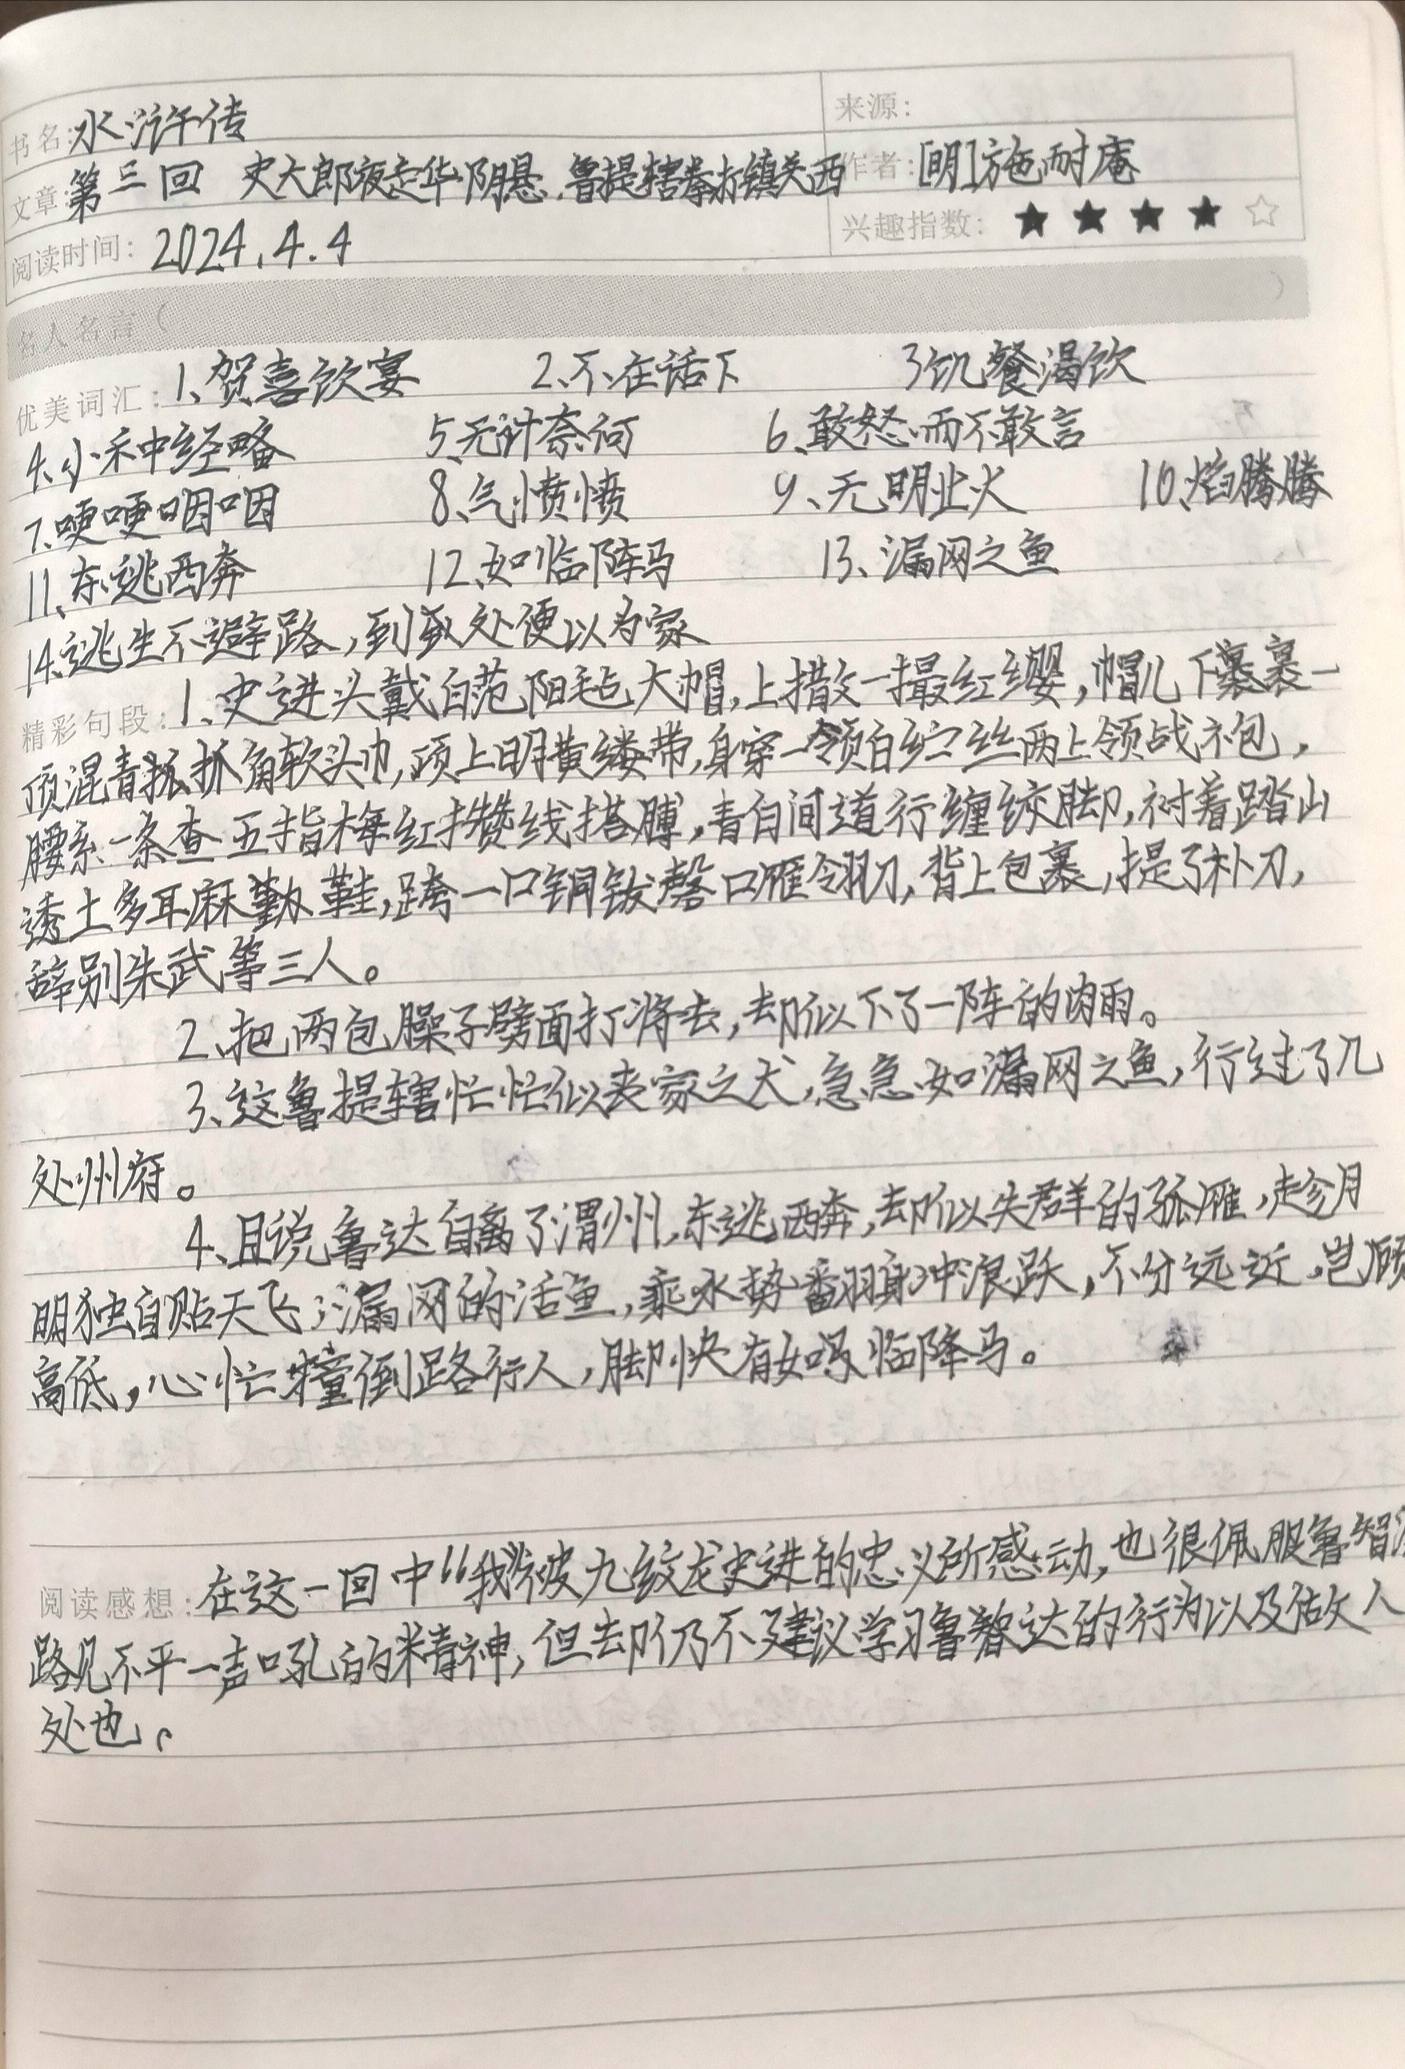 书名:水浒传 来源:
文章:第三回 史大郎夜走华阴县 鲁提辖拳打镇关西 作者:[明]施耐庵
阅读时间:2024.4.4 兴趣指数:★★★★☆
名人名言( )
优美词汇:1、贺喜饮宴 2、不在话下 3、饥餐渴饮
4、小种经略 5、无计奈何 6、敢怒而不敢言
7、哽哽咽咽 8、气愤愤 9、无明业火 10、焰腾腾
11、东逃西奔 12、如临阵马 13、漏网之鱼
14、逃生不避路,到处便以为家
精彩句段:1、史进头戴白范阳毡大帽,上撒一撮红缨,帽儿下裹一
顶混青抓角软头巾,项上明黄缕带,身穿一领白纻丝两上领战袍,
腰系一条查五指梅红攒线搭膊,青白间道行缠绞脚,衬着踏山
透土多耳麻鞋,跨一口铜钹磬口雁翎刀,背上包裹,提了朴刀,
辞别朱武等三人。
2、把两包臊子劈面打将去,却似下了一阵的肉雨。
3、这鲁提辖忙忙似丧家之犬,急急如漏网之鱼,行过了几
处州府。
4、且说鲁达自离了渭州,东逃西奔,却似失群的孤雁,趁月
明独自贴天飞;漏网的活鱼,乘水势翻身冲浪跃,不分远近,岂顾
高低,心忙撞倒路行人,脚快有如临阵马。
阅读感想:在这一回中“我”被九纹龙史进的忠义所感动,也很佩服鲁智
路见不平一声吼的精神,但却仍不建议学习鲁智达的行为以及做人
处也。